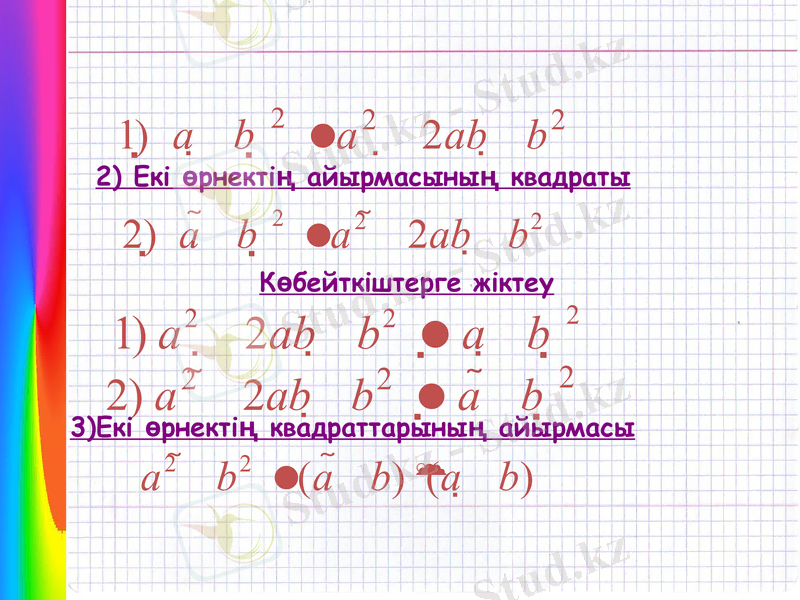 1) a b ² ●a² 2ab b²
2) Екі өрнектің айырмасының квадраты
2) a b ² ●a² 2ab b²
Көбейткіштерге жіктеу
1) a² 2ab b² ● a b ²
2) a² 2ab b² ● a b ²
3)Екі өрнектің квадраттарының айырмасы
a² b² ●(a b) (a b)